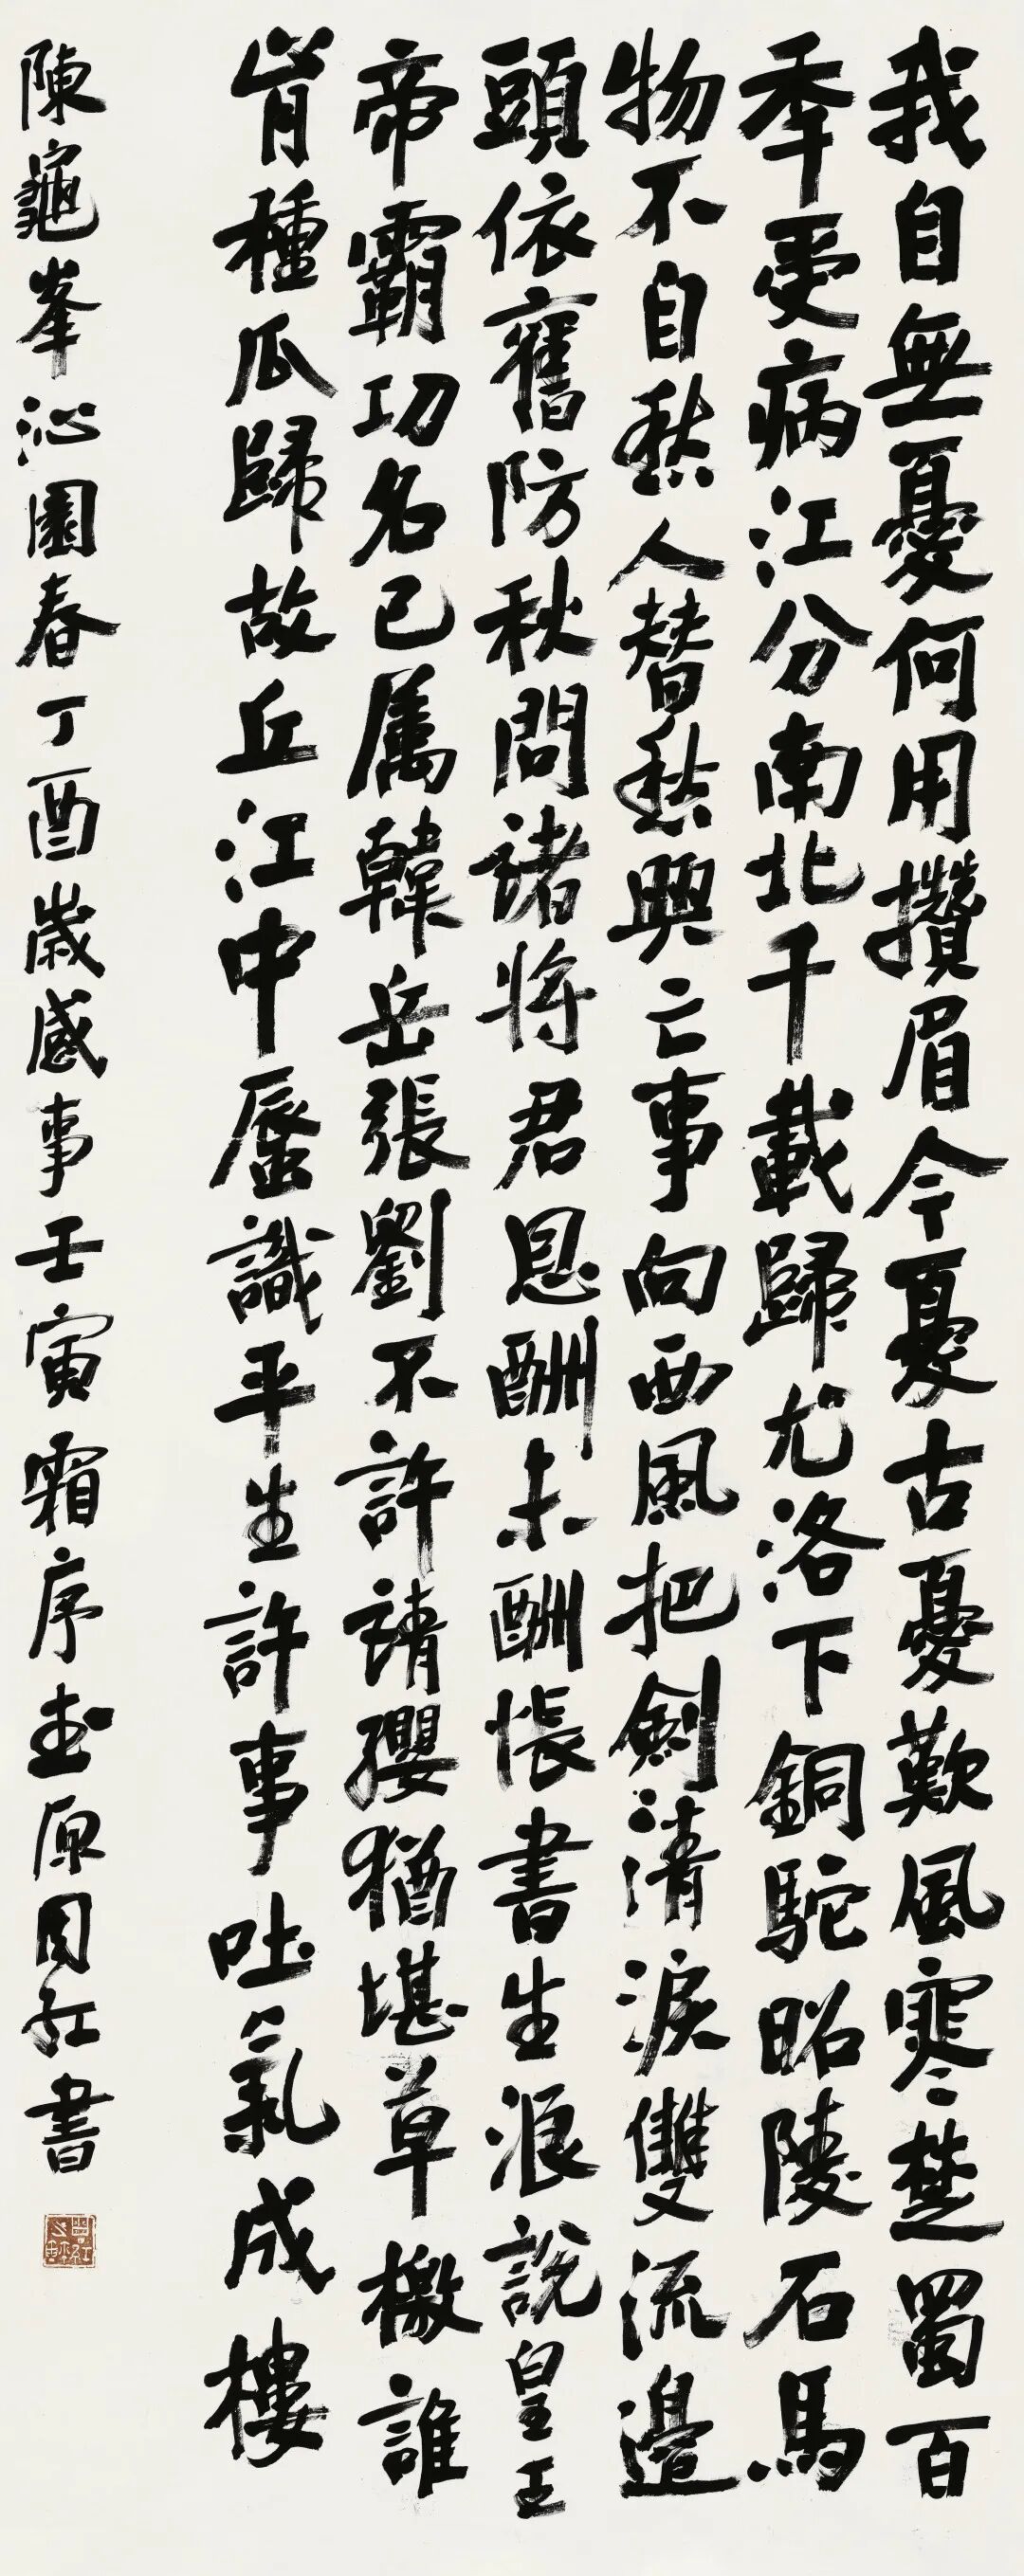 我自無憂何用攢眉今憂古憂歎風寒楚蜀百
年受病江分南北千載歸尤洛下銅駝昭陵石馬
物不自愁人替愁興亡事向西風把劍清淚雙流邊
頭依舊防秋問諸將君恩酬未酬悵書生浪說皇王
帝霸功名已屬韓岳張劉不許請纓猶堪草檄誰
肯種瓜歸故丘江中蜃識平生許事吐氣成樓
陳龜峯沁園春丁酉歲感事壬寅霜序書